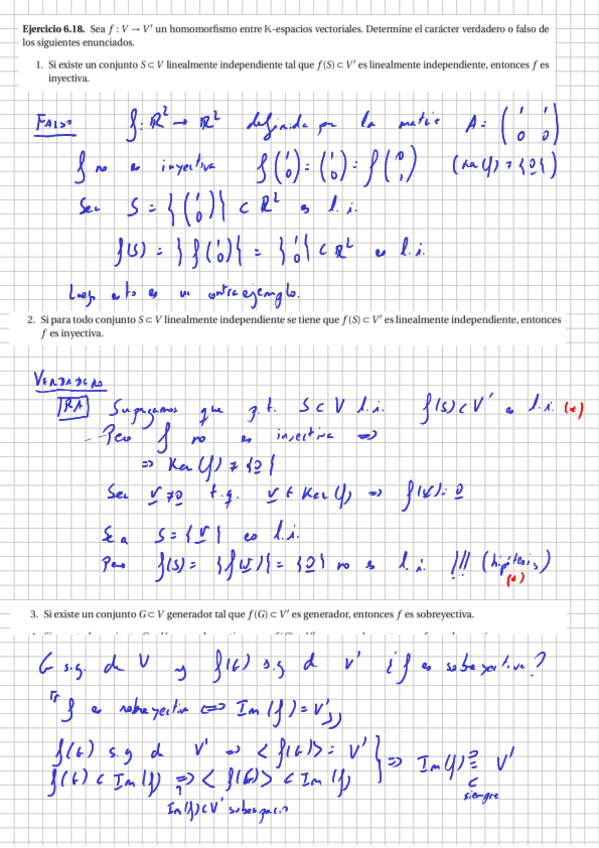 Ejercicio 6.18. Sea f : V → V' un homomorfismo entre K-espacios vectoriales. Determine el carácter verdadero o falso de
los siguientes enunciados.
1. Si existe un conjunto S ⊂ V linealmente independiente tal que f(S) ⊂ V' es linealmente independiente, entonces f es
inyectiva.
FALSO f: R² → R² definida por la matriz A = (1 1 / 0 0)
f no es inyectiva f(1 0) = (1 0) = f(0 1) (Ker(f) ≠ {0})
Sea S = {(1 0)} ⊂ R² es l.i.
f(S) = {f(1 0)} = {1 0} ⊂ R² es l.i.
Luego esto es un contraejemplo.
2. Si para todo conjunto S ⊂ V linealmente independiente se tiene que f(S) ⊂ V' es linealmente independiente, entonces
f es inyectiva.
VERDADERO
[RA] Supongamos que S ⊂ V l.i. f(S) ⊂ V' es l.i. (*)
- Pero f no es inyectiva ⇒
⇒ Ker(f) ≠ {0}
Sea v ≠ 0 t.q. v ∈ Ker(f) ⇒ f(v) = 0
Sea S = {v} es l.i.
Pero f(S) = {f(v)} = {0} no es l.i. !!! (hipótesis)
(*)
3. Si existe un conjunto G ⊂ V generador tal que f(G) ⊂ V' es generador, entonces f es sobreyectiva.
G s.g. de V y f(G) s.g d V' ¿ f es sobreyectiva?
"f es sobreyectiva ⟺ Im(f) = V'"
f(G) s.g d V' ⇒ <f(G)> = V' } ⇒ Im(f) ⊇ V'
f(G) ⊂ Im(f) ⇒ <f(G)> ⊂ Im(f) ⊂
siempre
Im(f) ⊂ V' subespacio